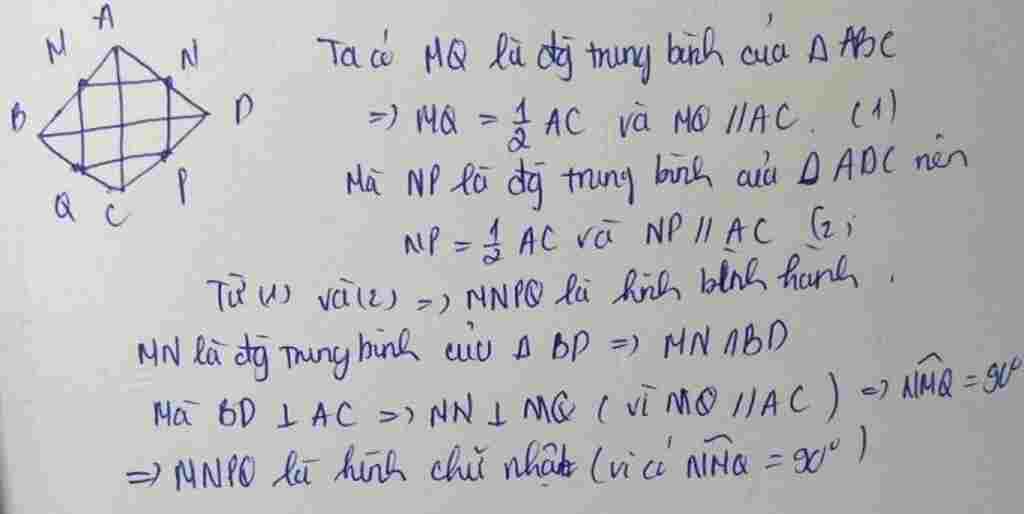 A
M
N
B
D
Q
C
P
Ta có MQ là đg trung bình của Δ ABC
=) MQ = 1/2 AC và MQ // AC. (1)
Mà NP là đg trung bình của Δ ADC nên
NP = 1/2 AC và NP // AC (2)
Từ (1) và (2) =) MNPQ là hình bình hành.
MN là đg trung bình của Δ BD =) MN // BD
Mà BD ⊥ AC =) MN ⊥ MQ (vì MQ // AC) =) NMQ = 90°
=) MNPQ là hình chữ nhật (vì có NMQ = 90°)